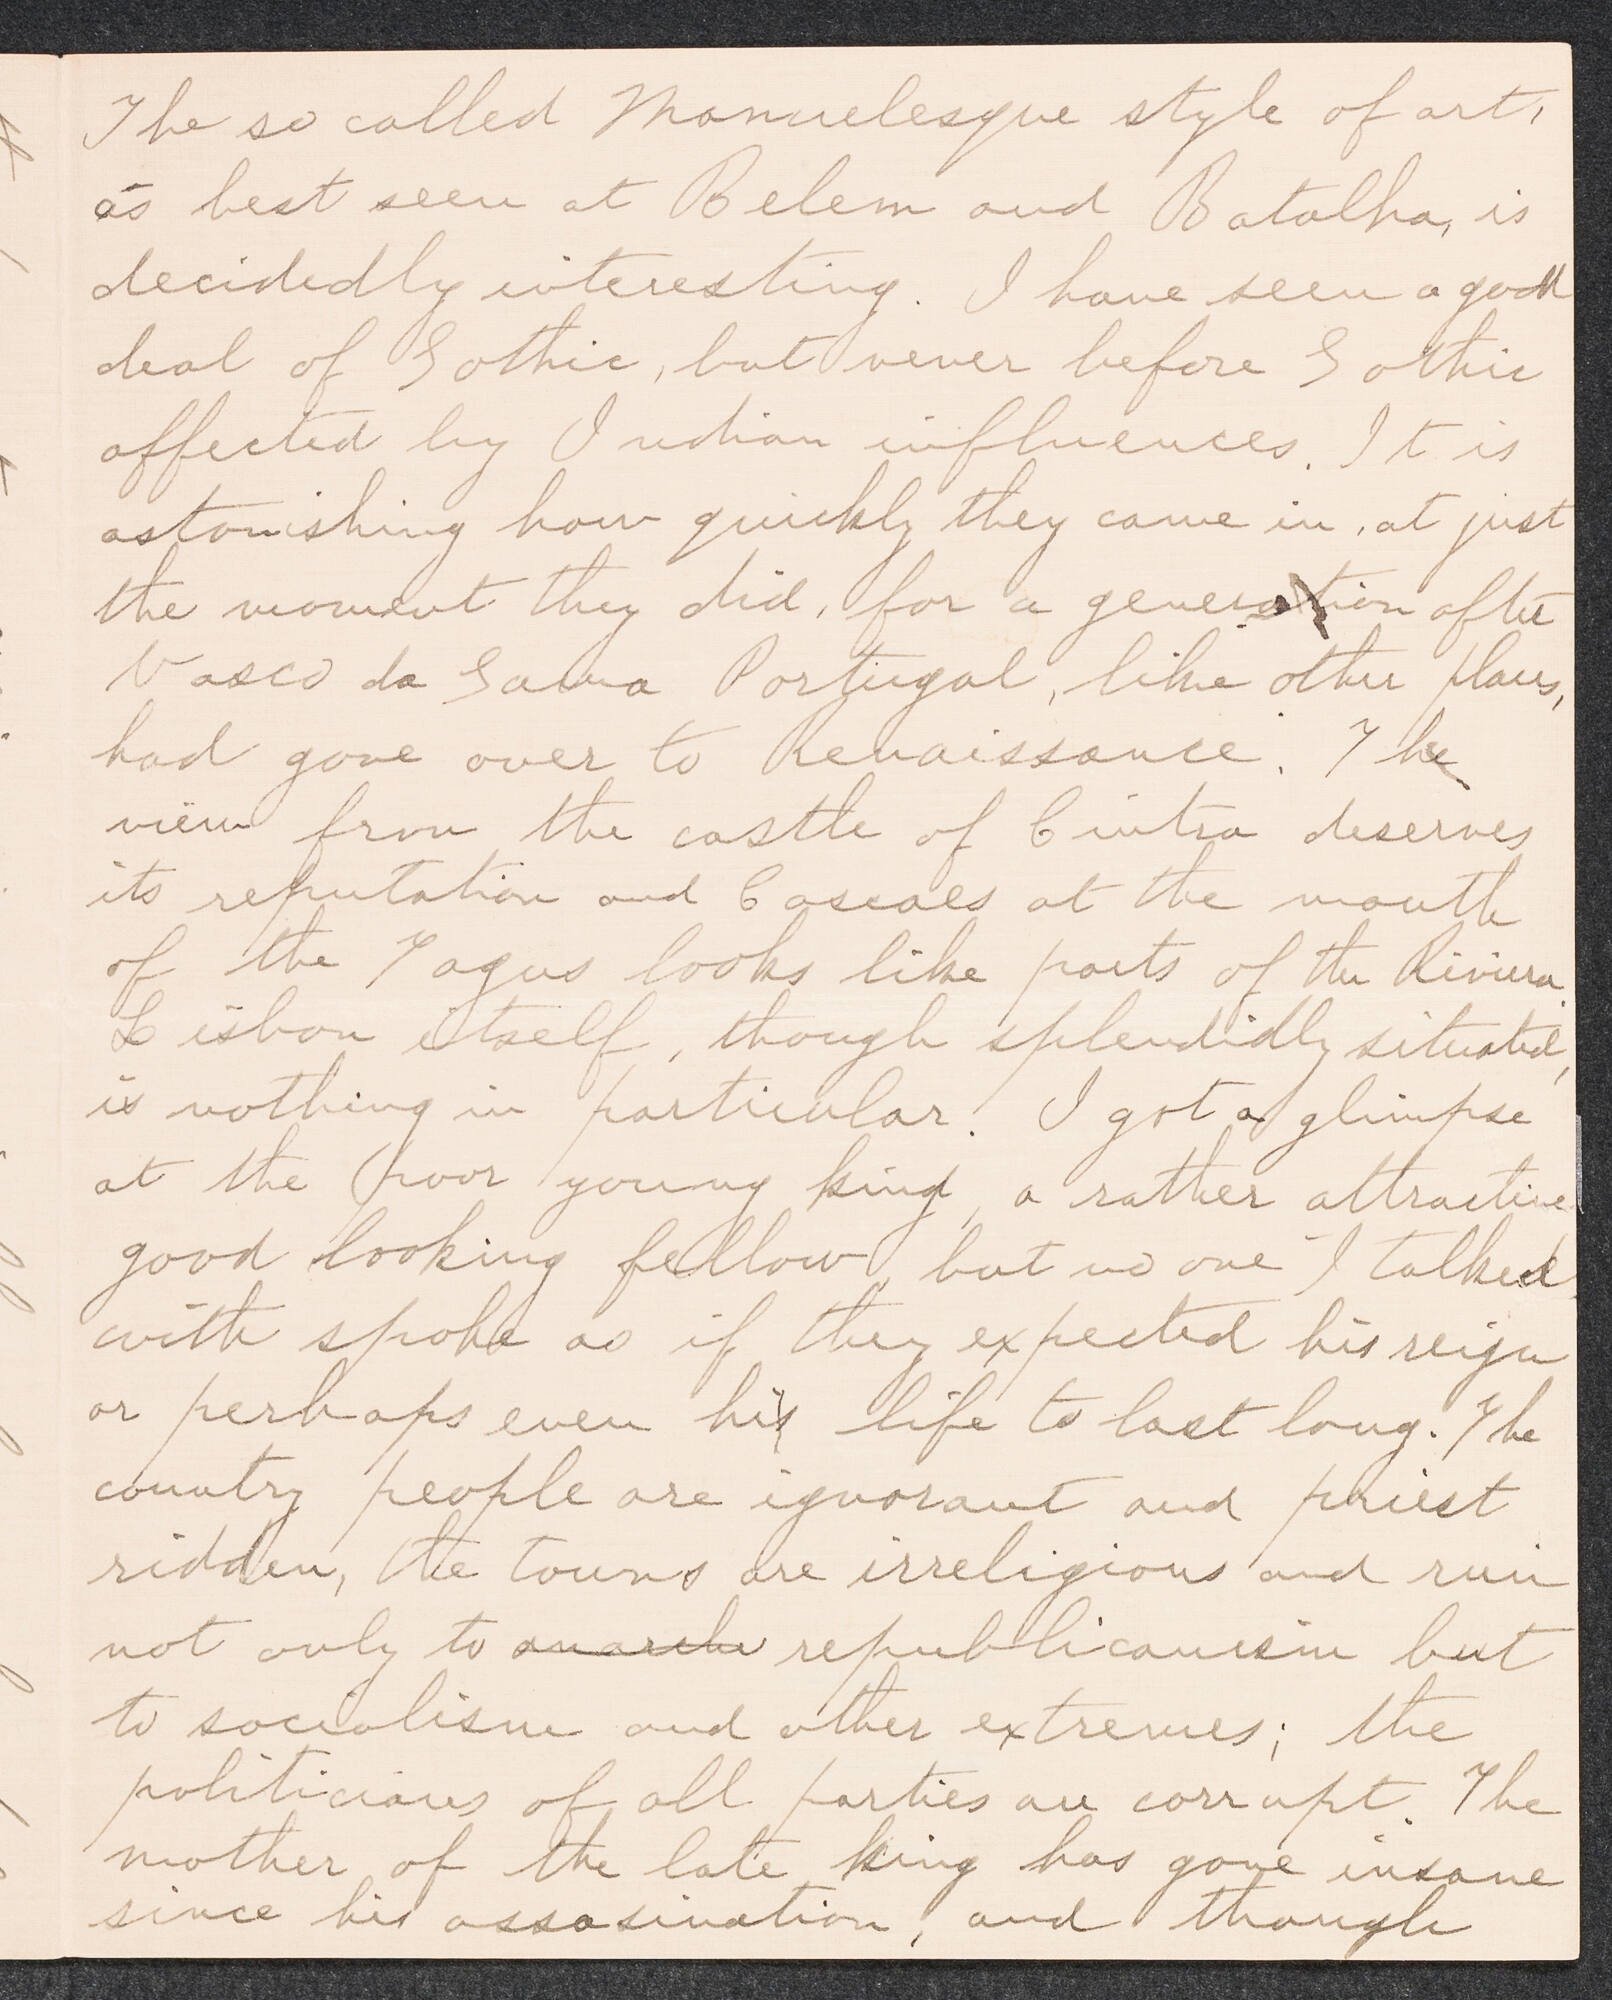 The so called Manuelesque style of art,
as best seen at Belem and Batalha, is
decidedly interesting. I have seen a good
deal of Gothic, but never before Gothic
affected by Indian influences. It is
astonishing how quickly they came in, at just
the moment they did, for a generation after
Vasco da Gama Portugal, like other places,
had gone over to Renaissance. The
view from the castle of Cintra deserves
its reputation and Cascaes at the mouth
of the Tagus looks like parts of the Riviera.
Lisbon itself, though splendidly situated,
is nothing in particular. I got a glimpse
at the poor young king, a rather attractive
good looking fellow, but no one I talked
with spoke as if they expected his reign
or perhaps even his life to last long. The
country people are ignorant and priest
ridden, the towns are irreligious and run
not only to anarchi republicanism but
to socialism and other extremes; the
politicians of all parties are corrupt. The
mother of the late king has gone insane
since his assasination, and though